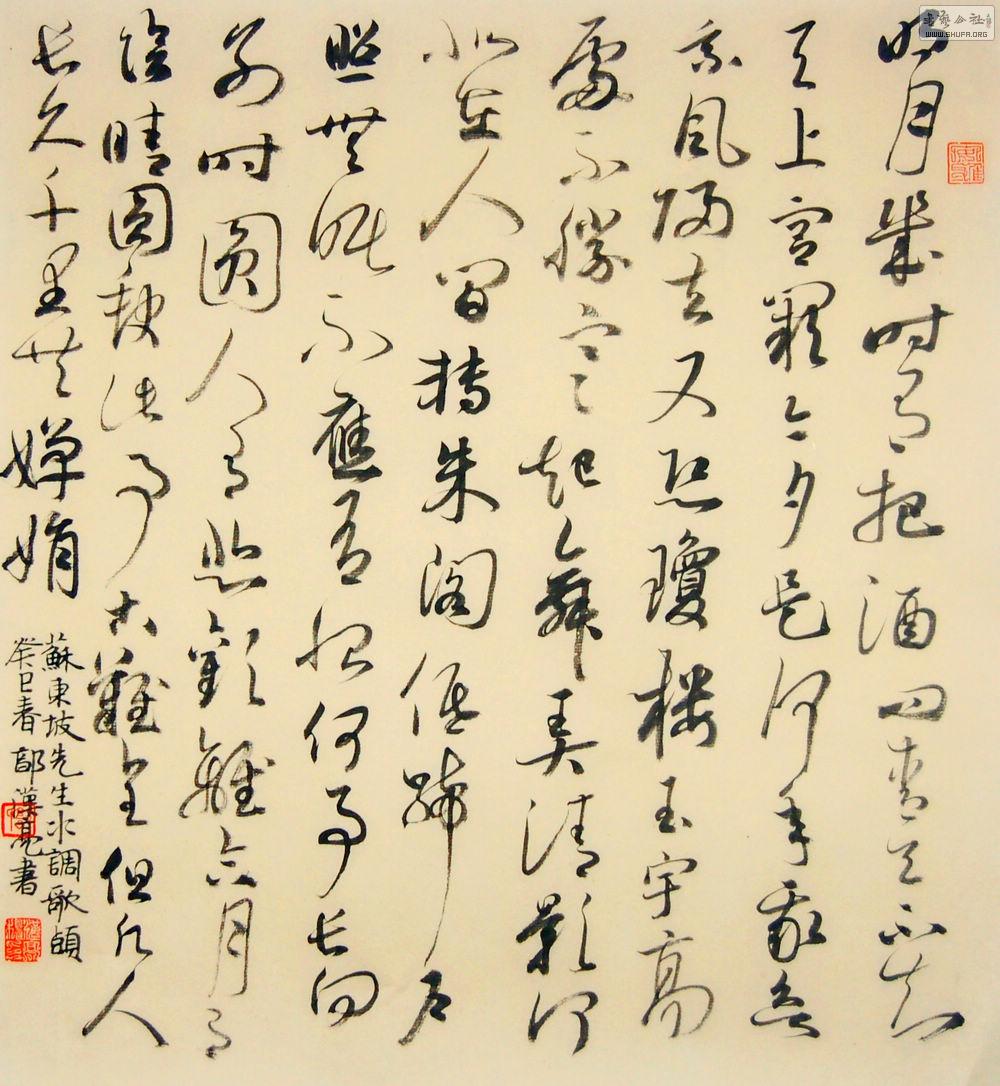 書藝公社
WWW.SHUFA.ORG
明月幾時有把酒問青天不知
天上宮闕今夕是何年我欲
乘風歸去又恐瓊樓玉宇高
處不勝寒起舞弄清影何
似在人間轉朱閣低綺戶
照無眠不應有恨何事長向
別時圓人有悲歡離合月有
陰晴圓缺此事古難全但願人
長久千里共嬋娟
蘇東坡先生水調歌頭
癸巳春 漢亮書